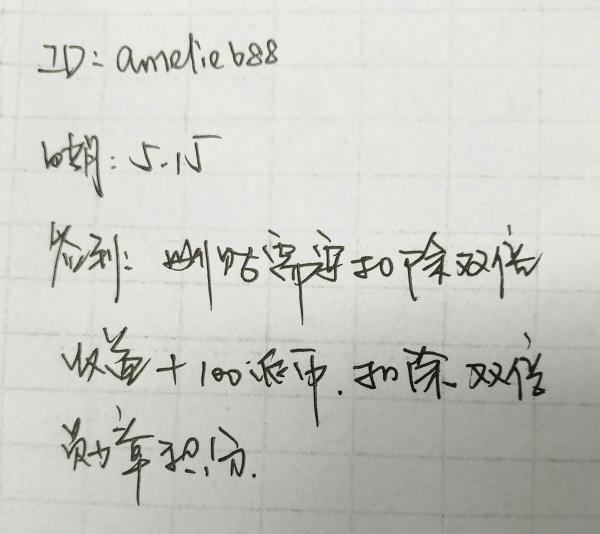 ID: amelie688
时间: 5.15
签到: 删帖需要扣除双倍
收益+100派币.扣除双倍
勋章积分.